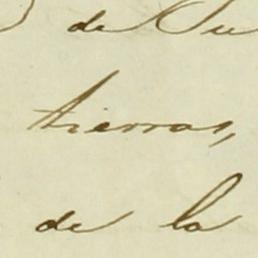 de Su
tierras,
de la